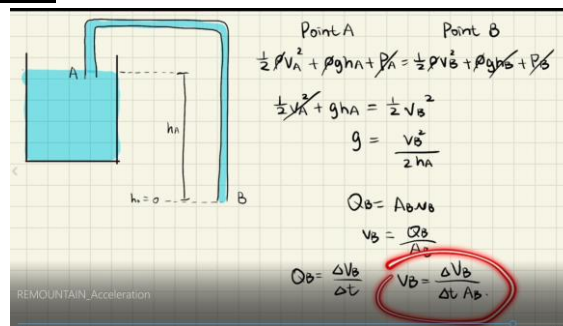 Point A Point B
½ρv_A² + ρgh_A + P_A = ½ρv_B² + ρgh_B + P_B
½v_A² + gh_A = ½v_B²
g = v_B² / 2h_A
Q_B = A_B v_B
v_B = Q_B / A_B
Q_B = ΔV_B / Δt
v_B = ΔV_B / Δt A_B.
A
h_A
h₀ = 0
B
REMOUNTAIN_Acceleration